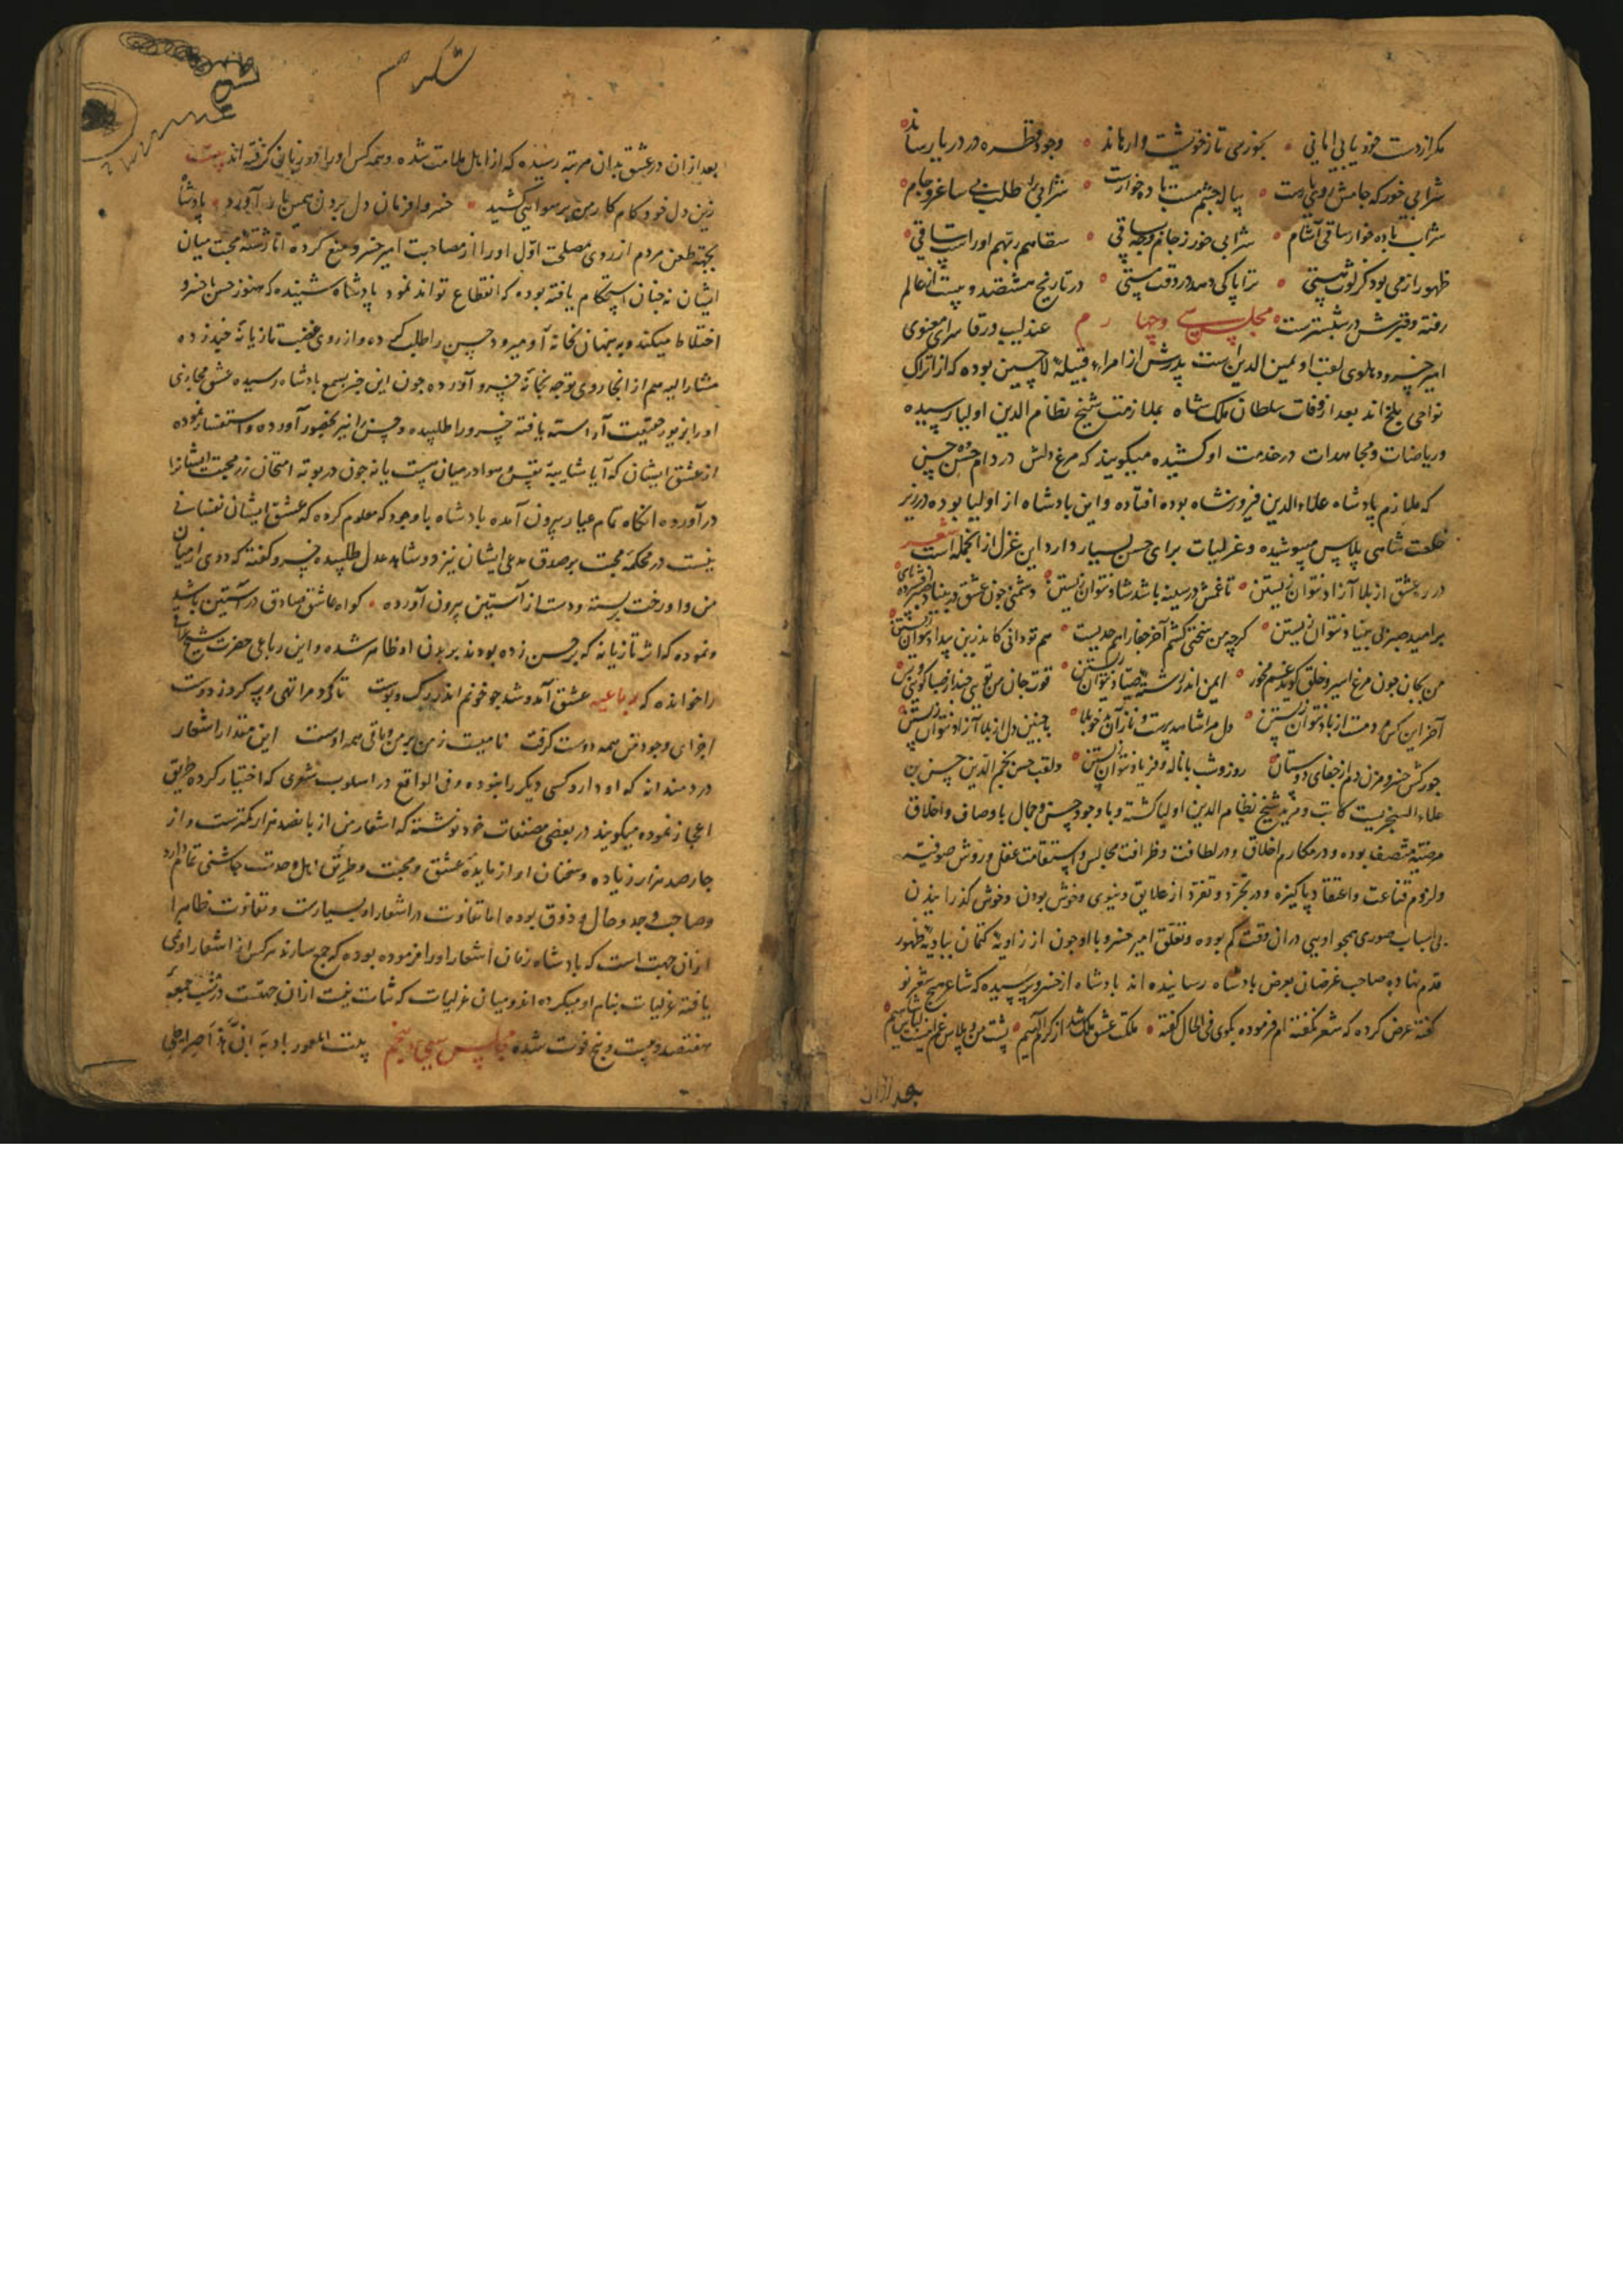 مکر از دست خود یابی امانی بخور می تا ز خویشت وارهاند وجود قطره در دریا رساند
شرابی خور که جامش روی یارست پیاله چشم مست باده خوارست شرابی را طلب بی ساغر و جام
شراب باده خوار ساقی آشام شرابی خور ز جام وجه باقی سقاهم ربهم او راست ساقی
ظهور از می بود کز لوث هستی ترا پاکی دهد در وقت مستی در تاریخ هشتصد و بیست از عالم
رفته و قبرش در شبسترست مجلس سی و چهارم عندلیب ورقا سرای معنوی
امیر خسرو دهلوی لقب او یمین الدین است پدرش از امراء قبیلهٔ لاچین بوده که از اتراک
نواحی بلخ اند بعد از وفات سلطان ملک شاه بملازمت شیخ نظام الدین اولیا رسیده
و ریاضات و مجاهدات در خدمت او کشیده میگویند که مرغ دلش در دام حُسْن حسن
که ملازم پادشاه علاءالدین فیروزشاه بوده افتاده و این پادشاه از اولیا بوده در زیر
خلعت شاهی پلاس میپوشیده و غزلیات برای حسن بسیار دارد این غزل از انجمله است شعر
در ره عشق از بلا آزاد نتوان زیستن تا غمش در سینه باشد شاد نتوان زیستن
بر امید صبر بی بنیاد نتوان زیستن کرچه من سختی کشم آخر جفا را هم حدیست هم تو دانی کاندرین بیداد نتوان زیستن
من بجان چون مرغ اسیر و خلق کوید غم مخور ایمن اندر رشتهٔ صیاد نتوان زیستن قوت جان من توی
آخر این کس دمست از باد نتوان زیستن دل مرا شاهد پرست با چنین دل از بلا آزاد نتوان زیستن
جور کش خسرو مزن دم از جفای دوستان روز و شب با ناله و فریاد نتوان زیستن و لقب حسن نجم الدین حسن بن
علاء السنجریست کاتب و مرید شیخ نظام الدین اولیا کشته و با وجود حسن و جمال باوصاف و اخلاق
مرضیه متصف بوده و در مکارم اخلاق و در لطافت و ظرافت مجالس و استقامت عقل و روش صوفیه
و لزوم قناعت و اعتقاد پاکیزه و در تجرد و تفرد از علایق دنیوی و خوش بودن و خوش گذرانیدن
بی اسباب صوری همچو اویی دران وقت کم بوده و تعلق امیر خسرو با او چون از زاویهٔ کتمان ببادیهٔ ظهور
قدم نهاده صاحب غرضان بعرض پادشاه رسانیده اند پادشاه از خسرو پرسیده که شاعر هیچ شعر نو
کفته عرض کرده که شعر نکفته ام فرموده بکوی فی الحال کفته ملکت عشق ملک شد از کرم الهیم پشت من و پلاس غم اینست قبای شاهیم
بعد ازان
بعد ازان در عشق بدان مرتبه رسیده که از اهل ملامت شده و همه کس او را در زبانی کرفته اند بیت
زین دل خود کام کار من برسوایی کشید خسروا فرمان دل بردن همین بار آورد پادشاه
بجهة طعن مردم از روی مصلحت اول او را از مصاحبت امیر خسرو منع کرده اما رشتهٔ محبت میان
ایشان نه چنان استحکام یافته بوده که انقطاع تواند نمود پادشاه شنیده که هنوز حسن با خسرو
اختلاط میکند و به پنهان بخانهٔ او میرود حسن را طلب کرده و از روی غضب تازیانهٔ چند زده
مشار الیه هم از انجا روی توجه بخانهٔ خسرو آورده چون این خبر بسمع پادشاه رسیده عشق مجازی
او را بزیور حقیقت آراسته یافته خسرو را طلبیده و حسن را نیز بحضور آورده و استفسار نموده
از عشق ایشان که آیا شایبهٔ نفس و هوا در میان هست یا نه چون در بوتهٔ امتحان زر محبت ایشانرا
در آورده انکاه تمام عیار بیرون آمده پادشاه با وجود که معلوم کرده که عشق ایشان نفسانی
نیست در محکمهٔ محبت بر صدق مدعی ایشان نیز دو شاهد عدل طلبیده خسرو کفته که دوی از میان
من و او رخت بر بسته و دست از آستین بیرون آورده کواه عاشق صادق در آستین باشد
و نموده که اثر تازیانه که بر حسن زده بودند بر بدن او ظاهر شده و این رباعی حضرت شیخ
را خوانده که رباعیه عشق آمد و شد چو خونم اندر رک و پوست تا کرد مرا تهی و پر کرد ز دوست
اجزای وجود من همه دوست کرفت نامیست ز من بر من و باقی همه اوست این مقدار اشعار
دردمندانه که او دارد کسی دیکر را نبوده و فی الواقع در اسلوب شعری که اختیار کرده طریق
اعجاز نموده میکویند در بعضی مصنفات خود نوشته که اشعار من از پانصد هزار کمترست و از
چارصد هزار زیاده و سخنان او از مایدهٔ عشق و محبت و طریق اهل وحدت چاشنی تمام دارد
و صاحب وجد و حال و ذوق بوده اما تفاوت در اشعار او بسیارست و تفاوت ظاهرا
از ان جهت است که پادشاه زمان اشعار او را فرموده بوده که جمع سازند هر کس از اشعار او می
یافته غزلیات بنام او میکرده اند و میان غزلیات که ثبات نیست ازان جهتست در شب جمعه
هفتصد و بیست و پنج فوت شده مجلس سی و پنجم بیت المعمور بادیهٔ انّ هَذا صراطی